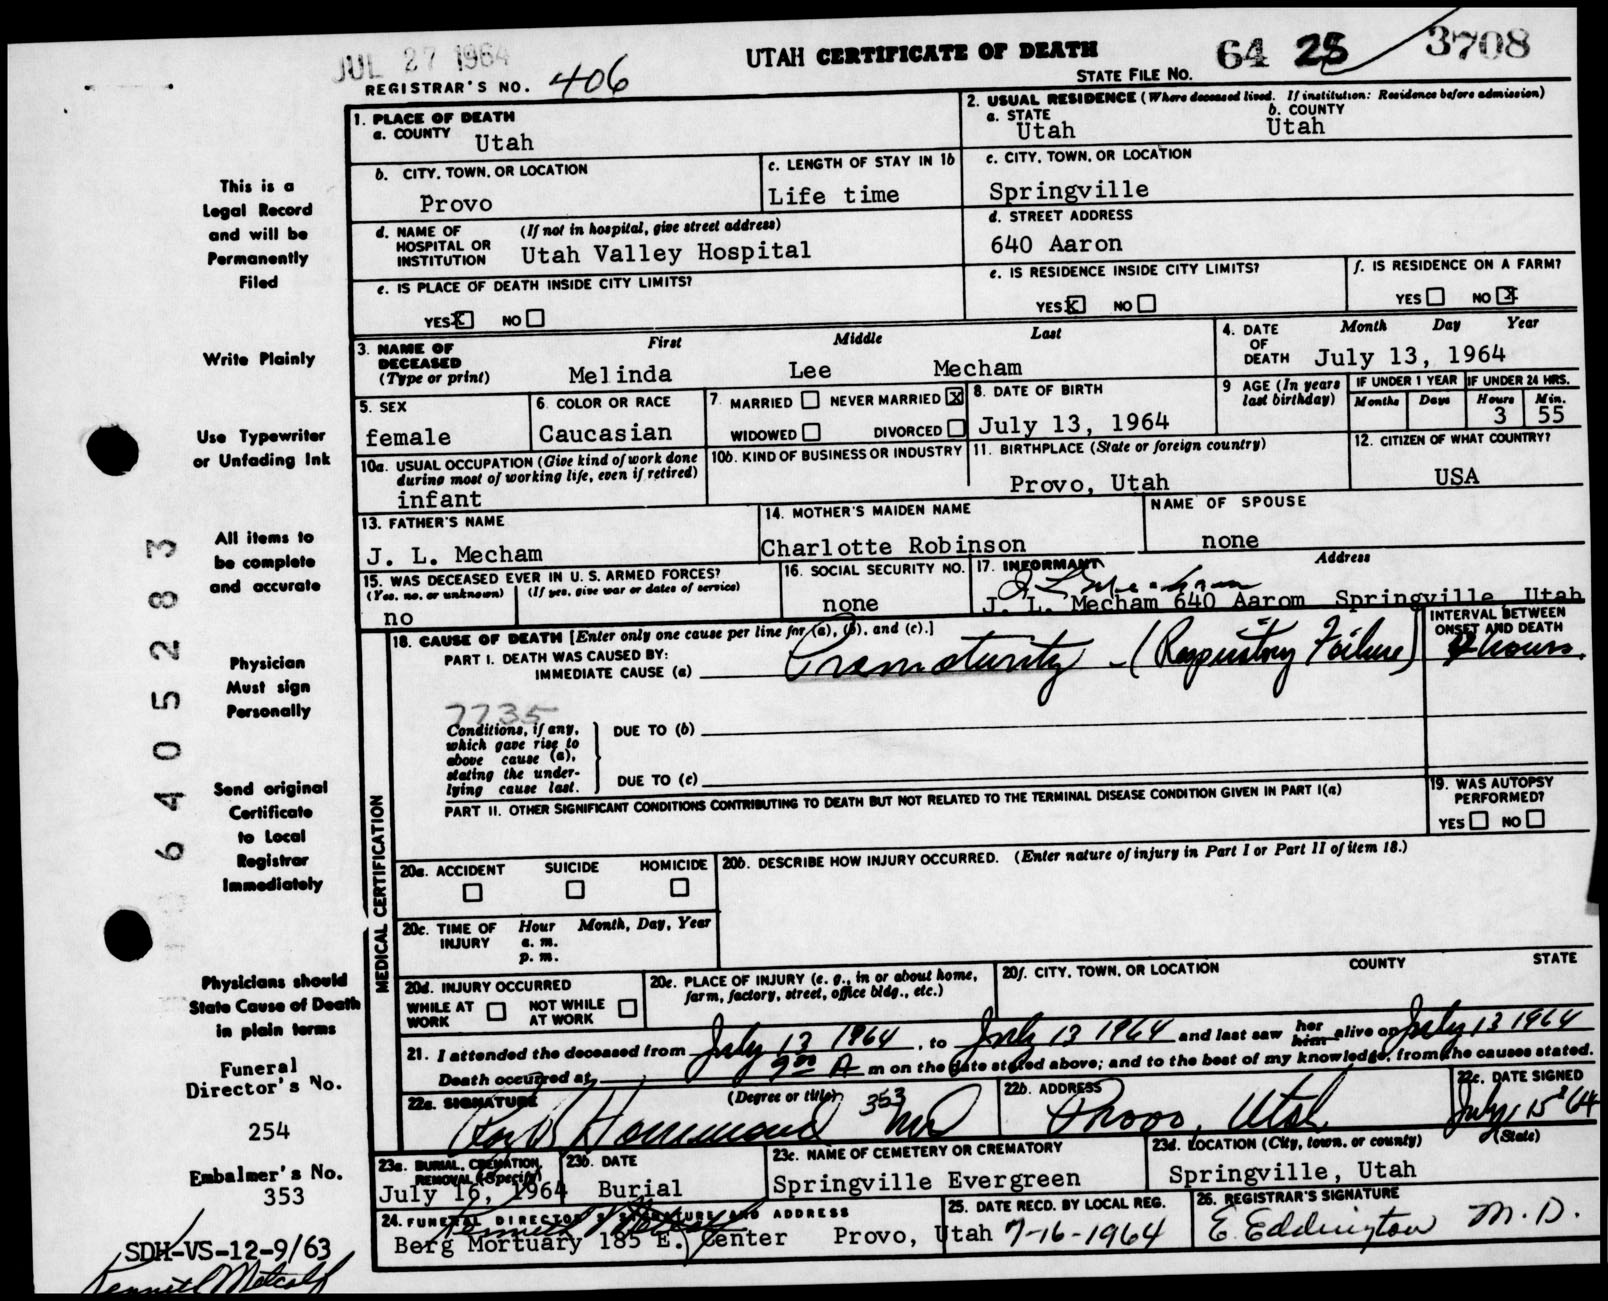 JUL 27 1964
UTAH CERTIFICATE OF DEATH
64 25 3708
REGISTRAR'S NO. 406
STATE FILE NO.
1. PLACE OF DEATH
a. COUNTY Utah
2. USUAL RESIDENCE (Where deceased lived. If institution: Residence before admission)
a. STATE Utah
b. COUNTY Utah
b. CITY, TOWN, OR LOCATION
Provo
c. LENGTH OF STAY IN 1b
Life time
c. CITY, TOWN, OR LOCATION
Springville
d. NAME OF HOSPITAL OR INSTITUTION (If not in hospital, give street address)
Utah Valley Hospital
d. STREET ADDRESS
640 Aaron
e. IS PLACE OF DEATH INSIDE CITY LIMITS?
YES X NO
e. IS RESIDENCE INSIDE CITY LIMITS?
YES X NO
f. IS RESIDENCE ON A FARM?
YES NO X
3. NAME OF DECEASED (Type or print)
First Middle Last
Melinda Lee Mecham
4. DATE OF DEATH Month Day Year
July 13, 1964
5. SEX
female
6. COLOR OR RACE
Caucasian
7. MARRIED NEVER MARRIED X
WIDOWED DIVORCED
8. DATE OF BIRTH
July 13, 1964
9 AGE (In years last birthday)
IF UNDER 1 YEAR
Months Days
IF UNDER 24 HRS.
Hours Min.
3 55
10a. USUAL OCCUPATION (Give kind of work done during most of working life, even if retired)
infant
10b. KIND OF BUSINESS OR INDUSTRY
11. BIRTHPLACE (State or foreign country)
Provo, Utah
12. CITIZEN OF WHAT COUNTRY?
USA
13. FATHER'S NAME
J. L. Mecham
14. MOTHER'S MAIDEN NAME
Charlotte Robinson
NAME OF SPOUSE
none
15. WAS DECEASED EVER IN U. S. ARMED FORCES?
(Yes, no, or unknown) (If yes, give war or dates of service)
no
16. SOCIAL SECURITY NO.
none
17. INFORMANT Address
J L Mecham
J. L. Mecham 640 Aarom Springville, Utah
MEDICAL CERTIFICATION
18. CAUSE OF DEATH [Enter only one cause per line for (a), (b), and (c).]
INTERVAL BETWEEN ONSET AND DEATH
PART I. DEATH WAS CAUSED BY:
IMMEDIATE CAUSE (a) Prematurity - (Respiratory Failure) 4 hours.
7735
Conditions, if any, which gave rise to above cause (a), stating the underlying cause last.
DUE TO (b)
DUE TO (c)
PART II. OTHER SIGNIFICANT CONDITIONS CONTRIBUTING TO DEATH BUT NOT RELATED TO THE TERMINAL DISEASE CONDITION GIVEN IN PART I(a)
19. WAS AUTOPSY PERFORMED?
YES NO
20a. ACCIDENT SUICIDE HOMICIDE
20b. DESCRIBE HOW INJURY OCCURRED. (Enter nature of injury in Part I or Part II of item 18.)
20c. TIME OF INJURY Hour Month, Day, Year
a. m.
p. m.
20d. INJURY OCCURRED
WHILE AT WORK NOT WHILE AT WORK
20e. PLACE OF INJURY (e. g., in or about home, farm, factory, street, office bldg., etc.)
20f. CITY, TOWN, OR LOCATION COUNTY STATE
21. I attended the deceased from July 13 1964, to July 13 1964 and last saw her him alive on July 13 1964
Death occurred at 9 00 A m on the date stated above; and to the best of my knowledge, from the causes stated.
22a. SIGNATURE (Degree or title)
Hammond 353 MD
22b. ADDRESS
Provo, Utah
22c. DATE SIGNED
July 15 '64
23a. BURIAL, CREMATION, REMOVAL (Specify)
July 16, 1964
23b. DATE
Burial
23c. NAME OF CEMETERY OR CREMATORY
Springville Evergreen
23d. LOCATION (City, town, or county) (State)
Springville, Utah
24. FUNERAL DIRECTOR'S SIGNATURE AND ADDRESS
Berg Mortuary 185 E. Center Provo, Utah
25. DATE RECD. BY LOCAL REG.
7-16-1964
26. REGISTRAR'S SIGNATURE
E. Eddington M.D.
This is a
Legal Record
and will be
Permanently
Filed
Write Plainly
Use Typewriter
or Unfading Ink
All items to
be complete
and accurate
Physician
Must sign
Personally
Send original
Certificate
to Local
Registrar
Immediately
Physicians should
State Cause of Death
in plain terms
Funeral
Director's No.
254
Embalmer's No.
353
SDH-VS-12-9/63
Kenneth Metcalf
6405283